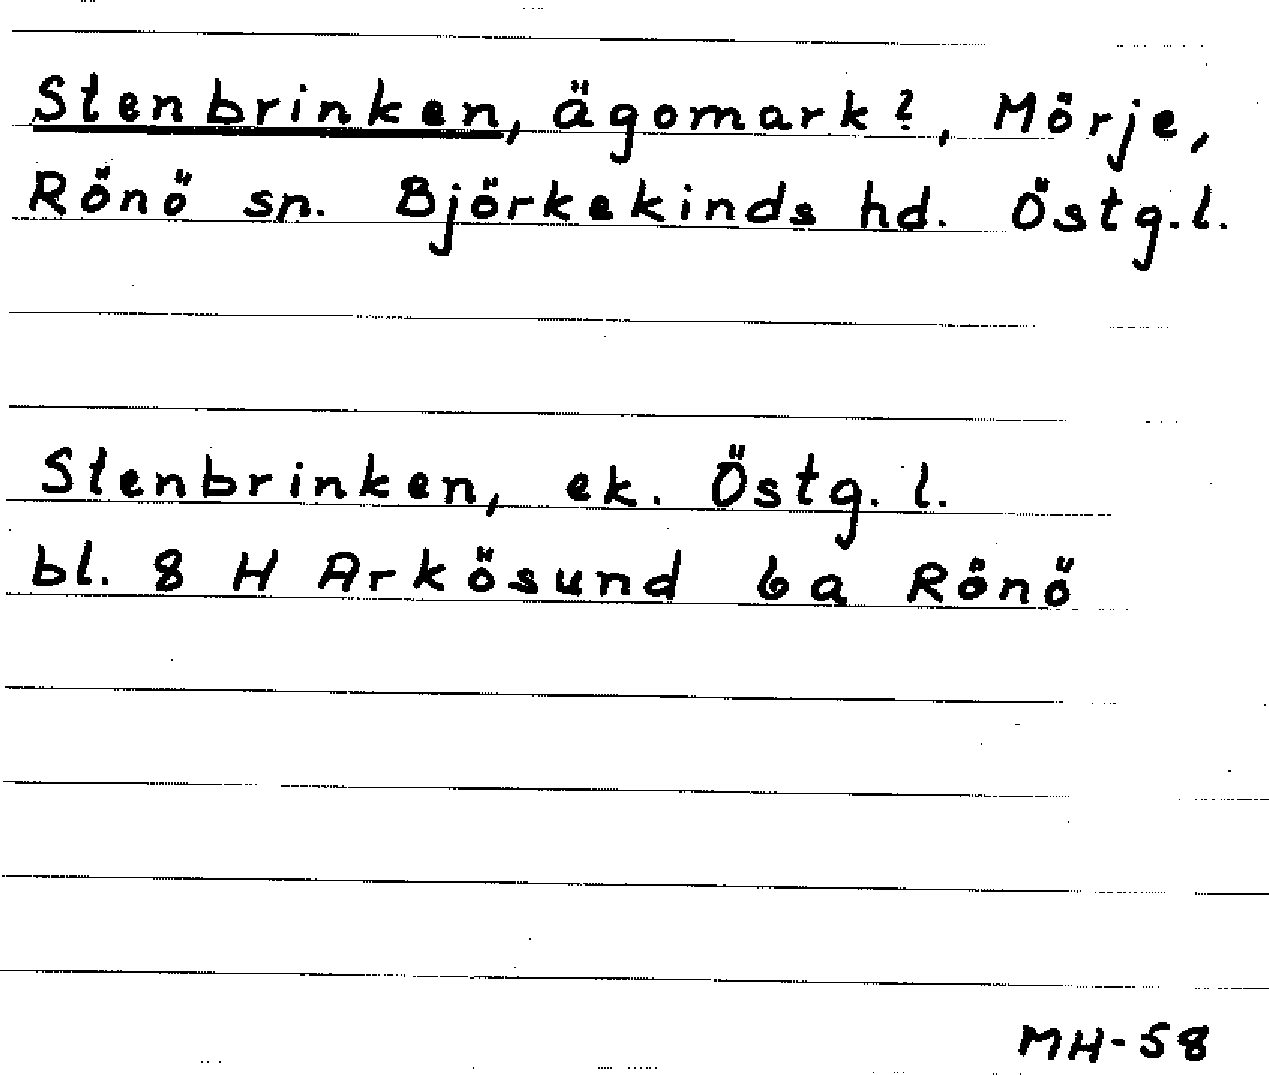 Stenbrinken, ägomark?, Mörje,
Rönö sn. Björkekinds hd. Östg.l.
Stenbrinken, ek. Östg. l.
bl. 8 H Arkösund 6a Rönö
MH-58